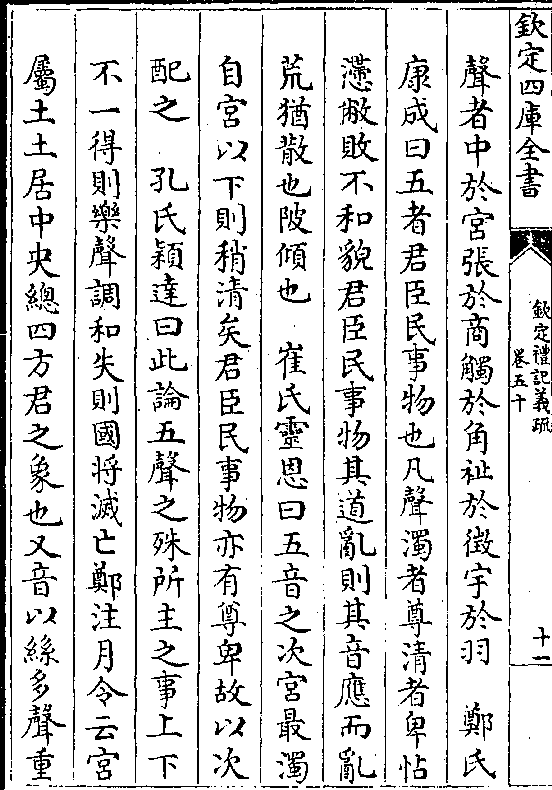 欽定四庫全書
欽定禮記義疏
卷五十
十一
聲者中於宮張於商觸於角祉於徵宇於羽　鄭氏
康成曰五者君臣民事物也凡聲濁者尊清者卑怗
懘敝敗不和貌君臣民事物其道亂則其音應而亂
荒猶散也陂傾也　崔氏靈恩曰五音之次宮最濁
自宮以下則稍清矣君臣民事物亦有尊卑故以次
配之　孔氏穎達曰此論五聲之殊所主之事上下
不一得則樂聲調和失則國將滅亡鄭注月令云宮
屬土土居中央總四方君之象也又音以絲多聲重